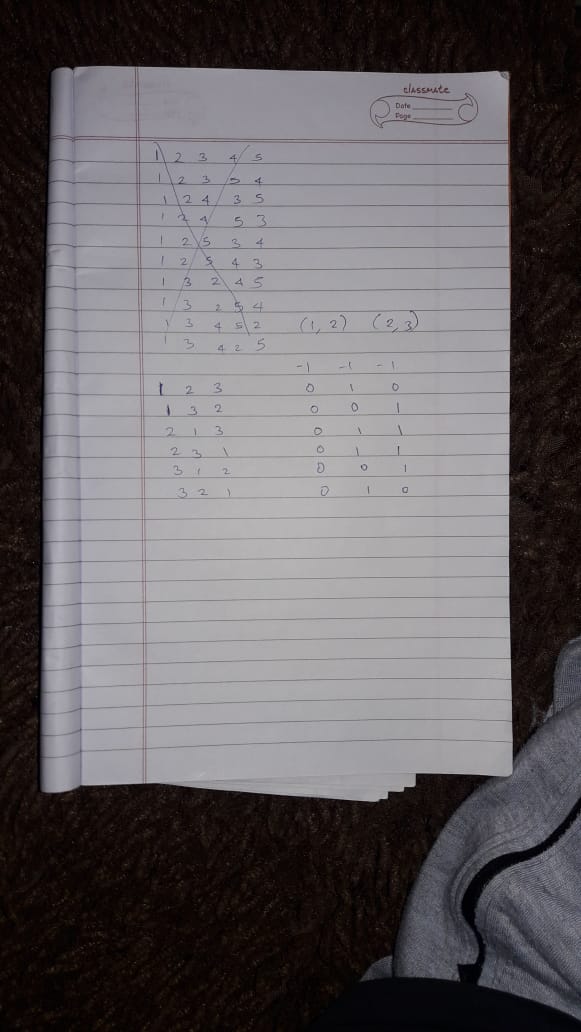 classmate
Date
Page
1 2 3 4 5
1 2 3 5 4
1 2 4 3 5
1 2 4 5 3
1 2 5 3 4
1 2 5 4 3
1 3 2 4 5
1 3 2 5 4
1 3 4 5 2 (1, 2) (2, 3)
1 3 4 2 5
-1 -1 -1
1 2 3 0 1 0
1 3 2 0 0 1
2 1 3 0 1 1
2 3 1 0 1 1
3 1 2 0 0 1
3 2 1 0 1 0